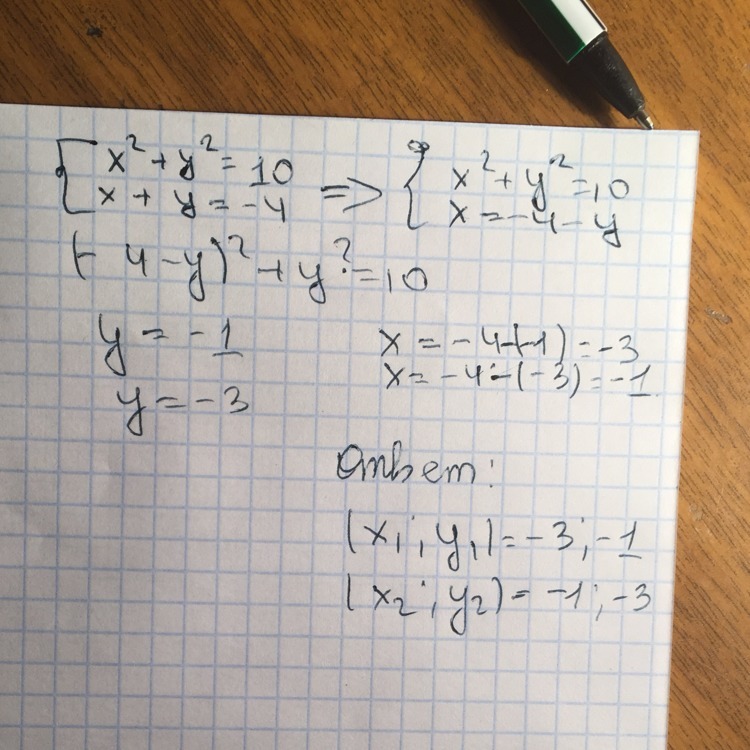 { x² + y² = 10
x + y = -4 => { x² + y² = 10
x = -4 - y
(-4 - y)² + y² = 10
y = -1    x = -4-(-1) = -3
y = -3    x = -4-(-3) = -1
Ответ:
(x₁; y₁) = -3; -1
(x₂; y₂) = -1; -3